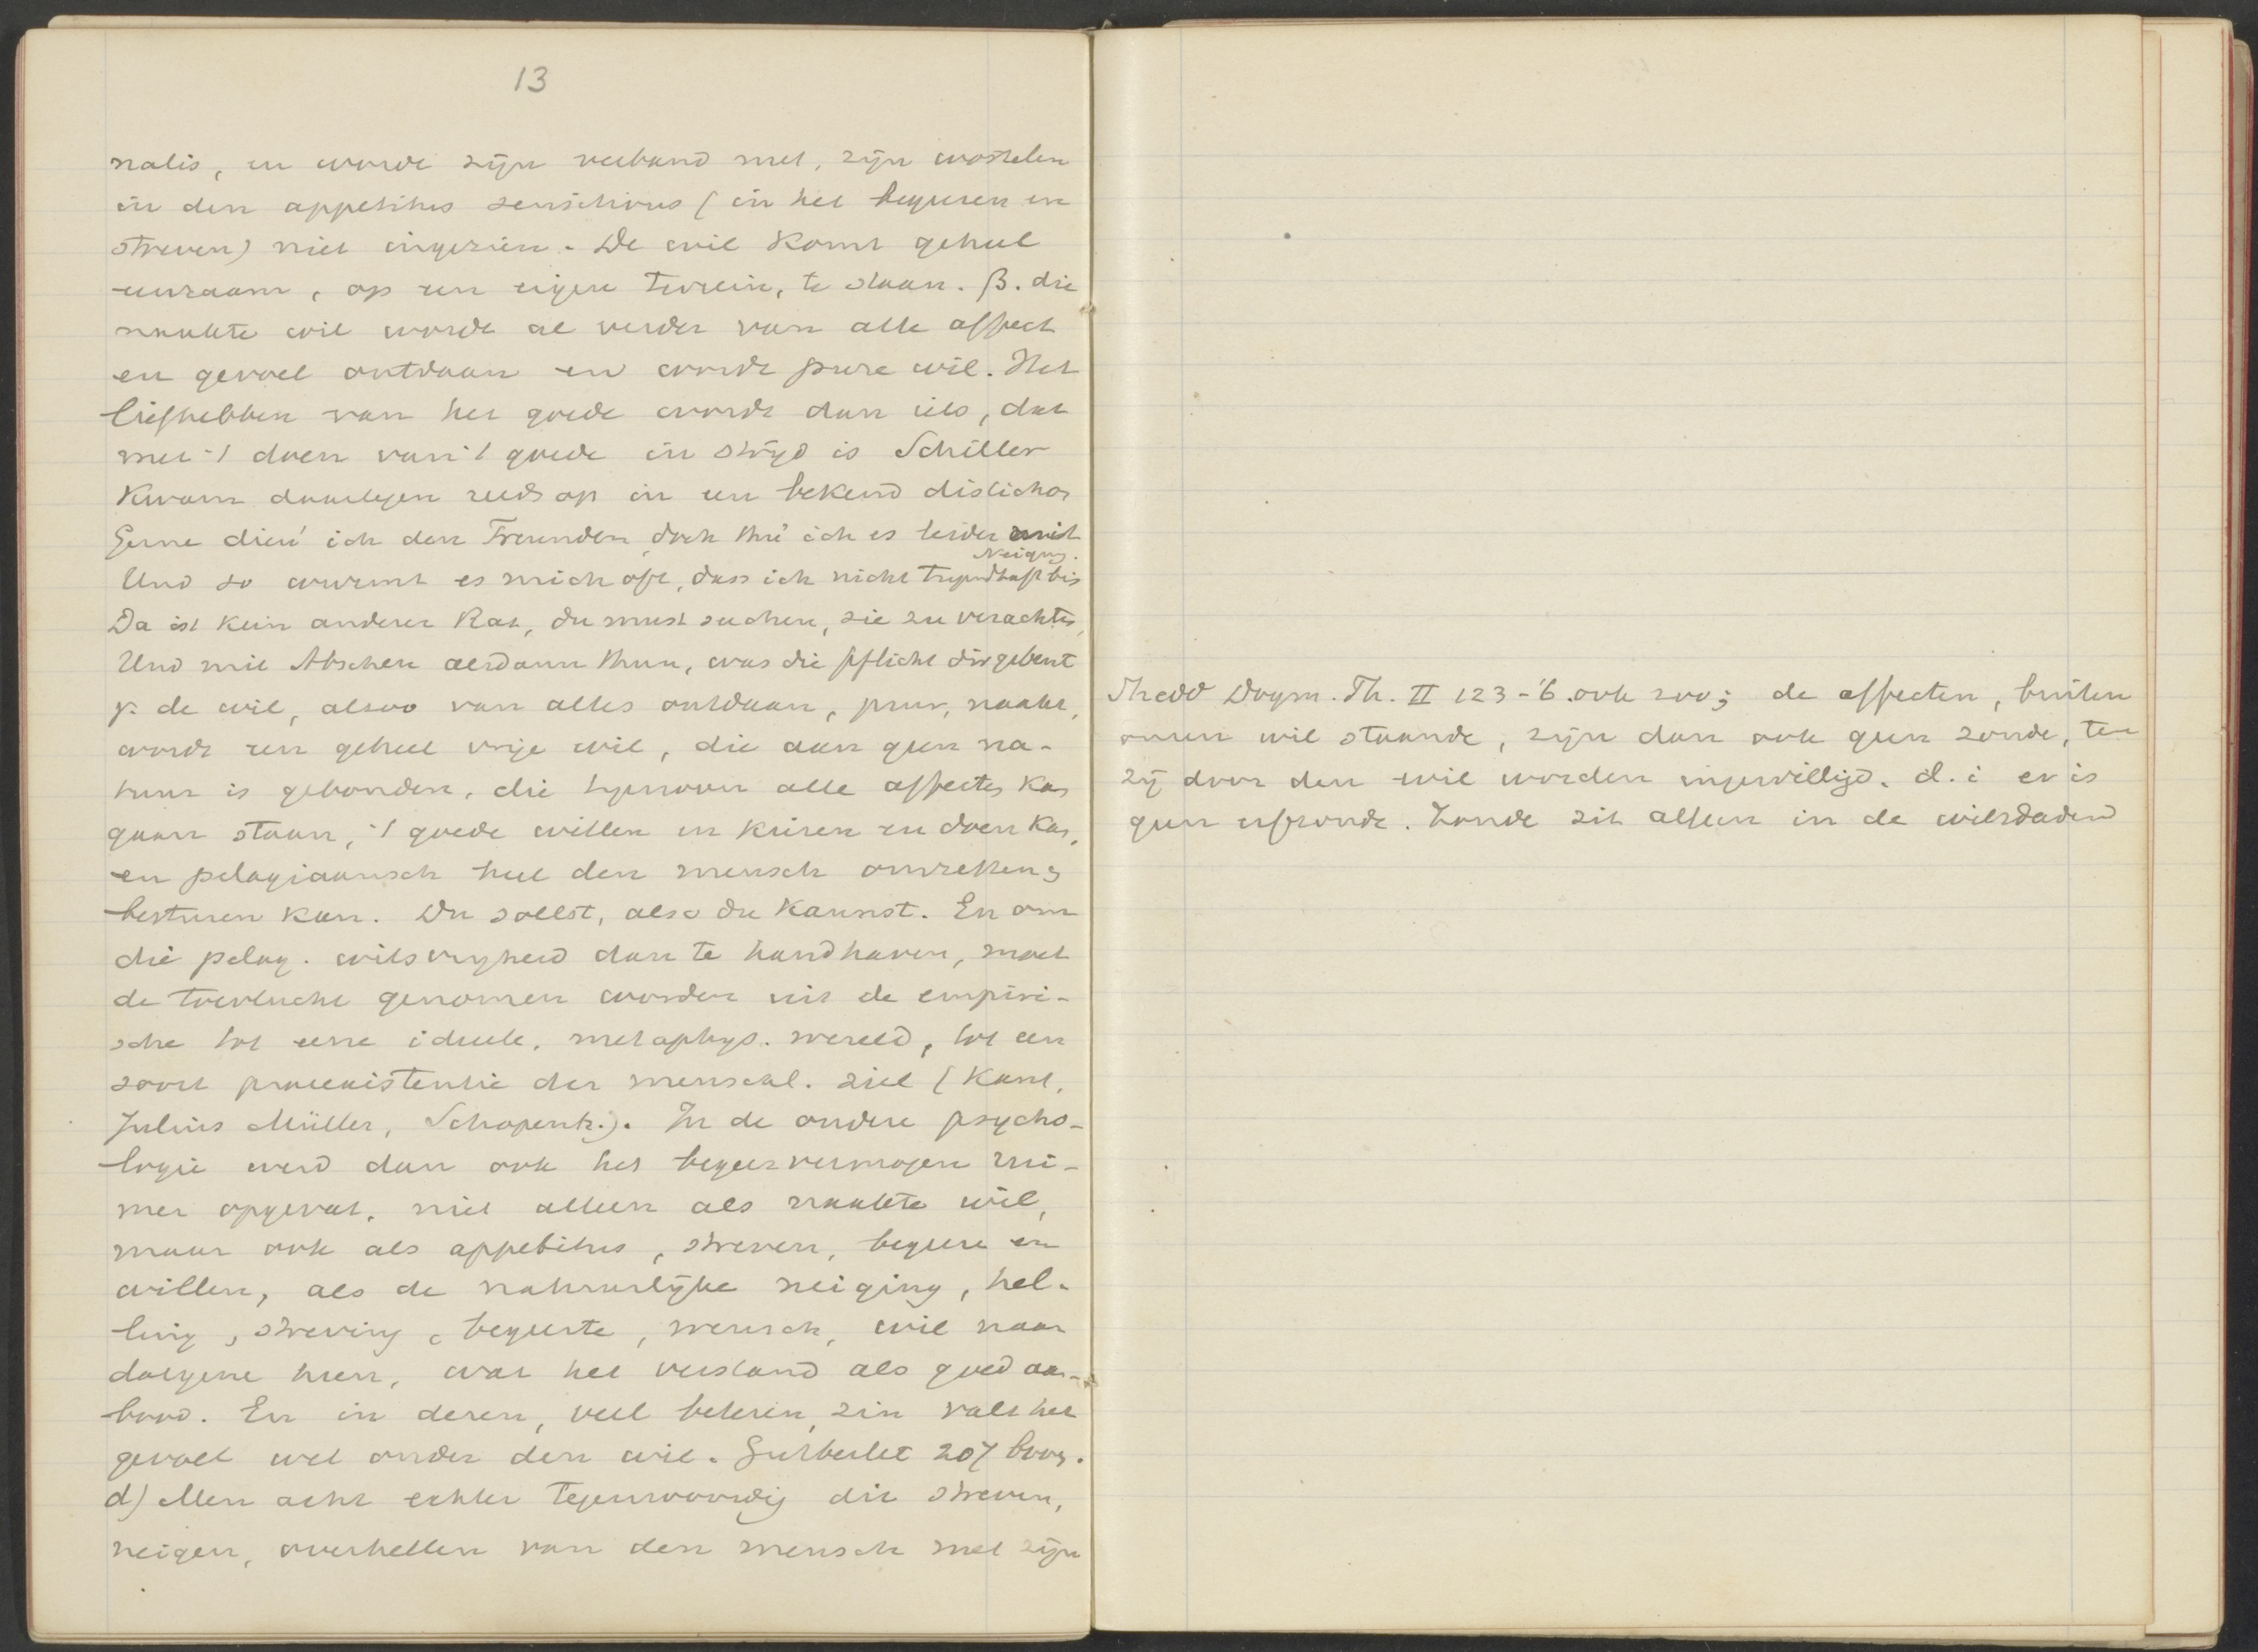 13
nalis, en wordt zijn verband met, zijn wortelen
in den appetitus sensitivus (in het begeren en
streven) niet ingezien. De wil komt geheel
eenzaam, op een eigen terrein, te staan. β. die
naakte wil wordt al verder van alle affect
en gevoel ontdaan en wordt pure wil. Het
liefhebben van het goede wordt dan iets, dat
met 't doen van 't goede in strijd is Schiller
kwam daartegen reeds op in een bekend distichon
Gerne dien' ich den Freunden, doch thu' ich es leider mit
Neigng.
Und so wurmt es mich oft, dass ich nicht tugendhaft bin
Da ist kein anderer Rat, du must suchen, sie zu verachten,
Und mit Abscheu alsdann thun, was die Pflicht dir gebeut
γ. de wil, alzoo van alles ontdaan, puur, naakt,
wordt een geheel vrije wil, die aan geen na-
tuur is gebonden, die tegenover alle affecten kan
gaan staan, 't goede willen en kiezen en doen kan,
en pelagiaansch heel den mensch omzetten en
besturen kan. Du sollst, also du kannst. En om
die pelag. wilsvrijheid dan te handhaven, moet
de toevlucht genomen worden uit de empiri-
sche tot eene ideele, metaphys. wereld, tot een
soort praeexistentie der menschl. ziel (Kant,
Julius Müller, Schopenh.). In de oudere psycho-
logie werd dan ook het begeervermogen rui-
mer opgevat, niet alleen als naakte wil,
maar ook als appetitus, streven, begeeren en
willen, als de natuurlijke neiging, hel-
ling, streving, begeerte, wensch, wil naar
datgene heen, wat het verstand als goed aan-
bood. En in dezen, veel beteren, zin valt het
gevoel wel onder den wil. Gutberlet 207 boven.
d) Men acht echter tegenwoordig dit streven,
neigen, overhellen van den mensch met zijn
Shedd Dogm. Th. II 123-'6. ook zoo; de affecten, buiten
onzen wil staande, zijn dan ook geen zonde, ten
zij door den wil worden ingewilligd. d. i er is
geen erfzonde. Zonde zit alleen in de wilsdaden